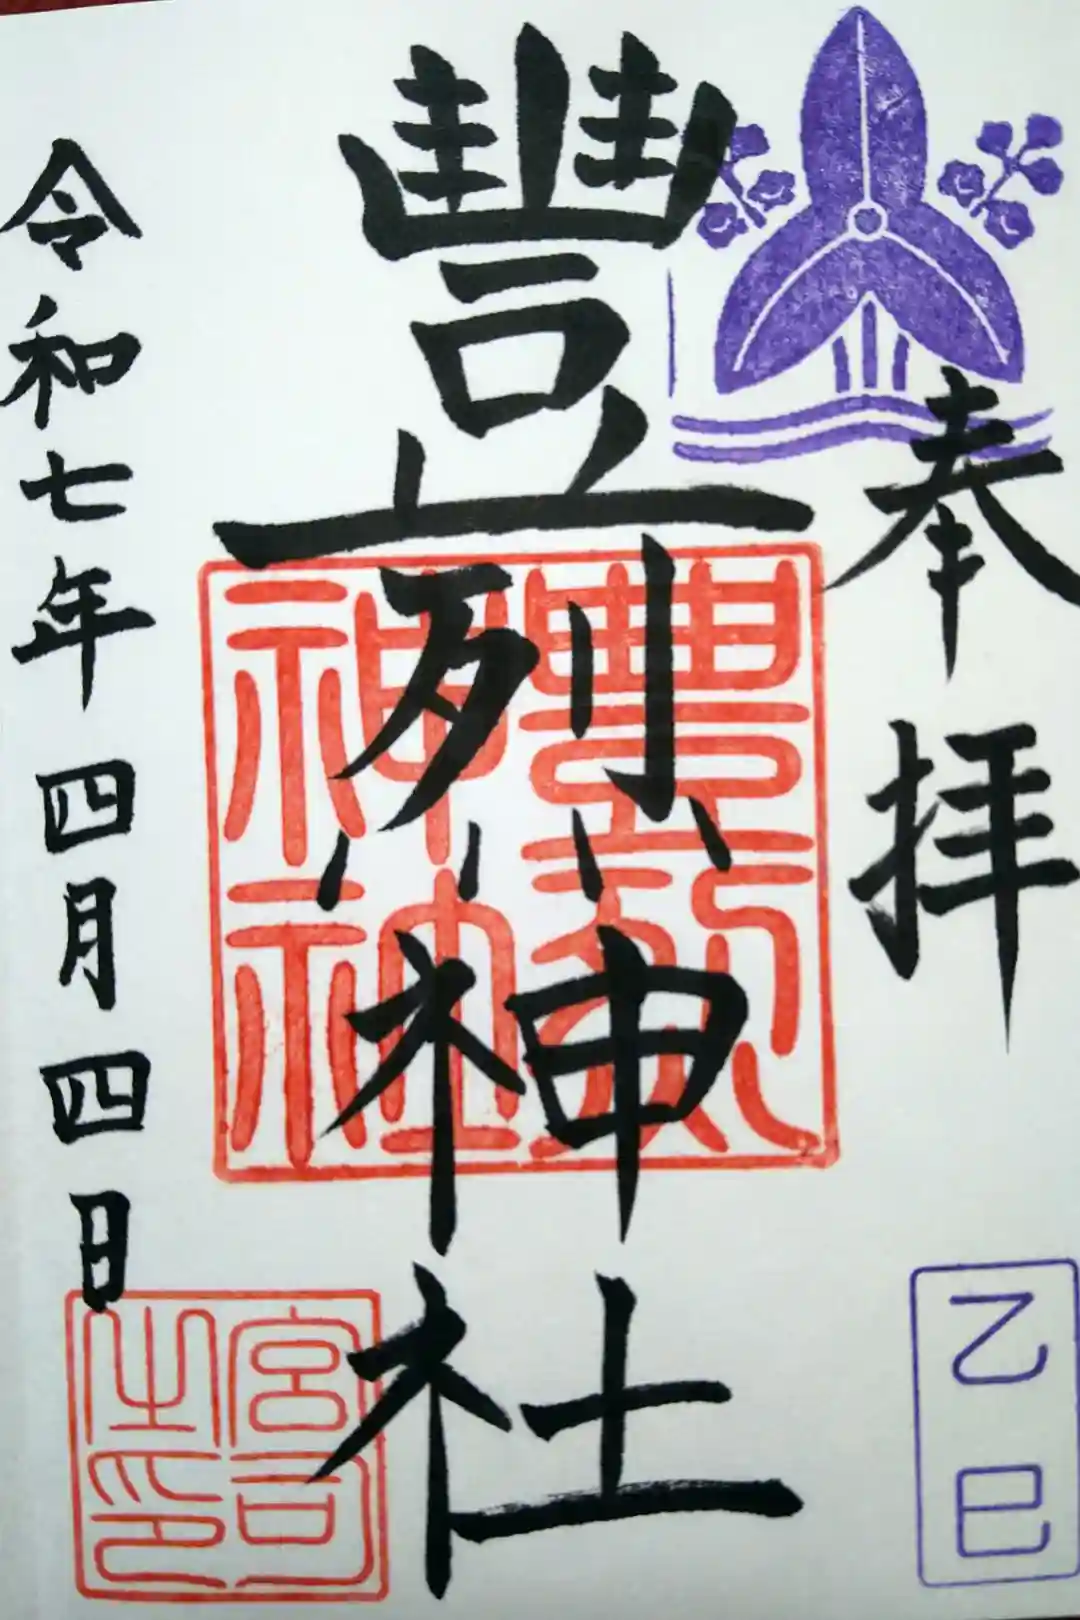 奉拝
乙巳
豐烈神社
豊烈神社
宮司之印
令和七年四月四日